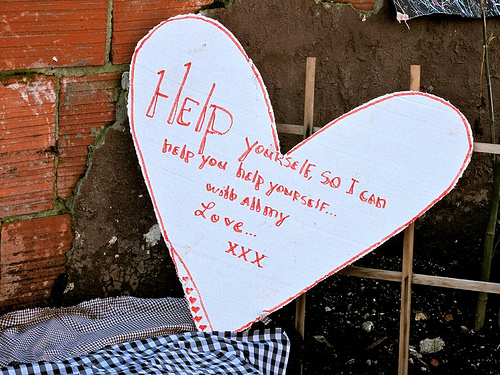 Help
yourself, so I can
help you help yourself...
with all my
Love...
xxx